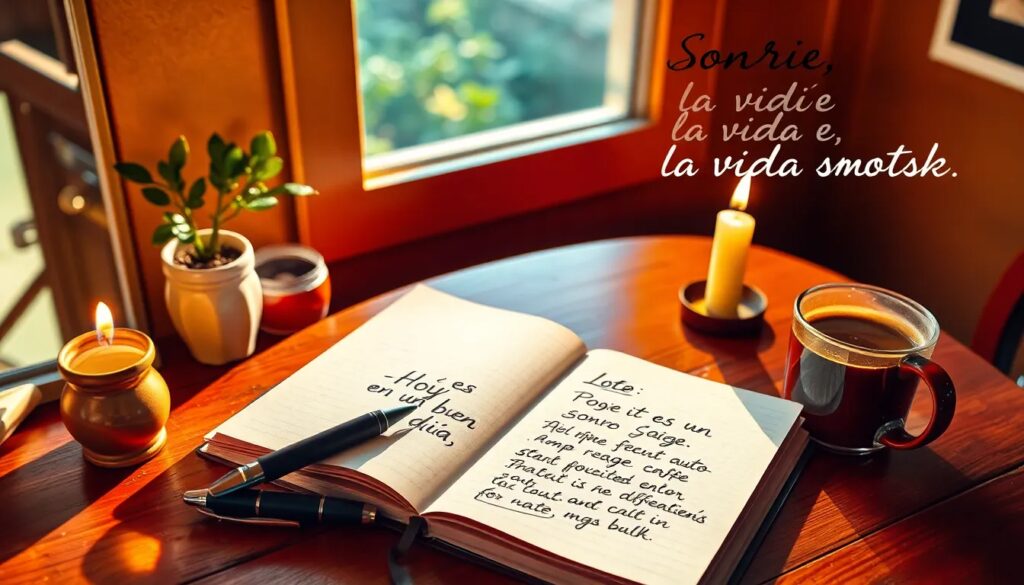 Sonrie,
la vidíe
la vida e,
la vida smotsk.
-Hoý, es
en un bien
díia,
Lote:
Poge it es un
sonro Gaige.
Ael ripe fecnt auto
Amp reage caffe
stant foucited entor
Tratut is ne dlfeatieris
tal lout and calt in
for nate, mgs bulk.